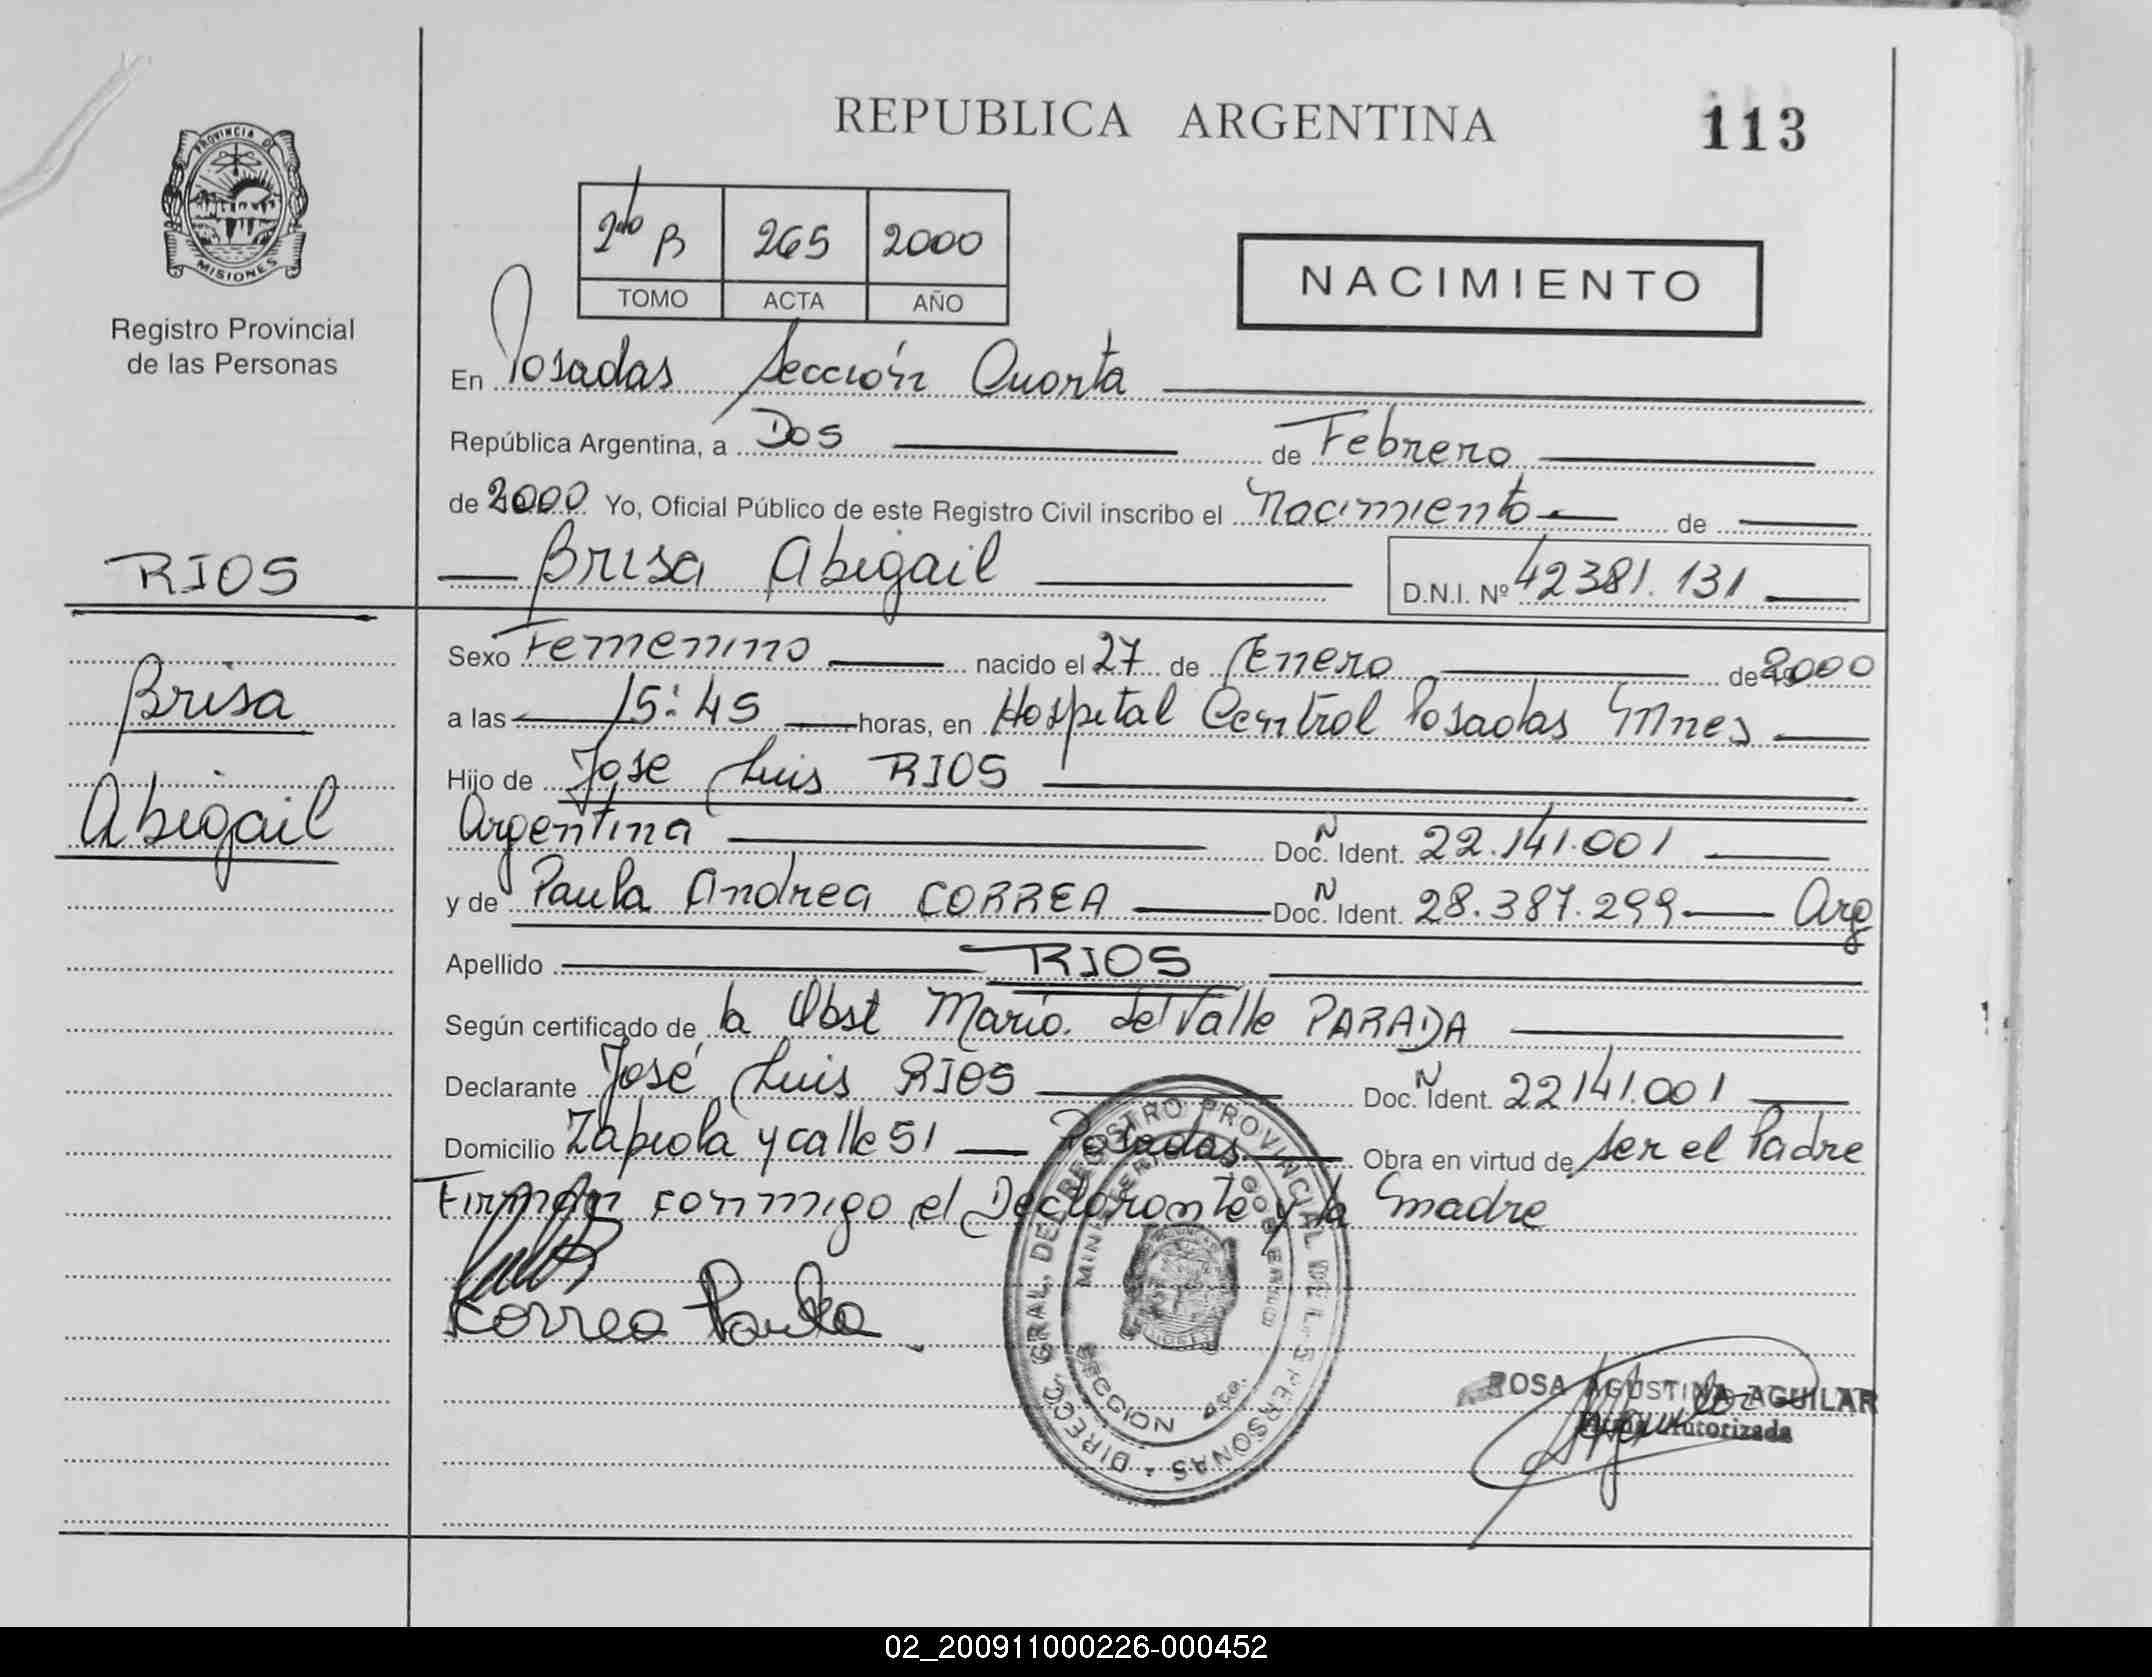 REPUBLICA ARGENTINA
113
PROVINCIA DE
MISIONES
Registro Provincial
de las Personas
2do B 265 2000
TOMO ACTA AÑO
NACIMIENTO
En Posadas Sección Cuarta
República Argentina, a Dos de Febrero
de 2000 Yo, Oficial Público de este Registro Civil inscribo el Nacimiento de
Brisa Abigail D.N.I. Nº 42381.131
RIOS
Brisa
Abigail
Sexo Femenino nacido el 27 de Enero de 2000
a las 15:45 horas, en Hospital Central Posadas Mnes
Hijo de Jose Luis RIOS
Argentina Doc. Ident. N 22.141.001
y de Paula Andrea CORREA Doc. Ident. N 28.387.299 Arg
Apellido RIOS
Según certificado de la Obst Maria del Valle PARADA
Declarante José Luis RIOS Doc. Ident. N 22141.001
Domicilio Zapiola y calle 51 Posadas Obra en virtud de ser el Padre
Firman conmigo el Declarante y la madre
Correa Paula
DIRECC. GRAL. DEL REGISTRO PROVINCIAL DE LAS PERSONAS
MINISTERIO GOBIERNO
SECCION 4ta.
ROSA AGUSTINA AGUILAR
Firma Autorizada
02_200911000226-000452